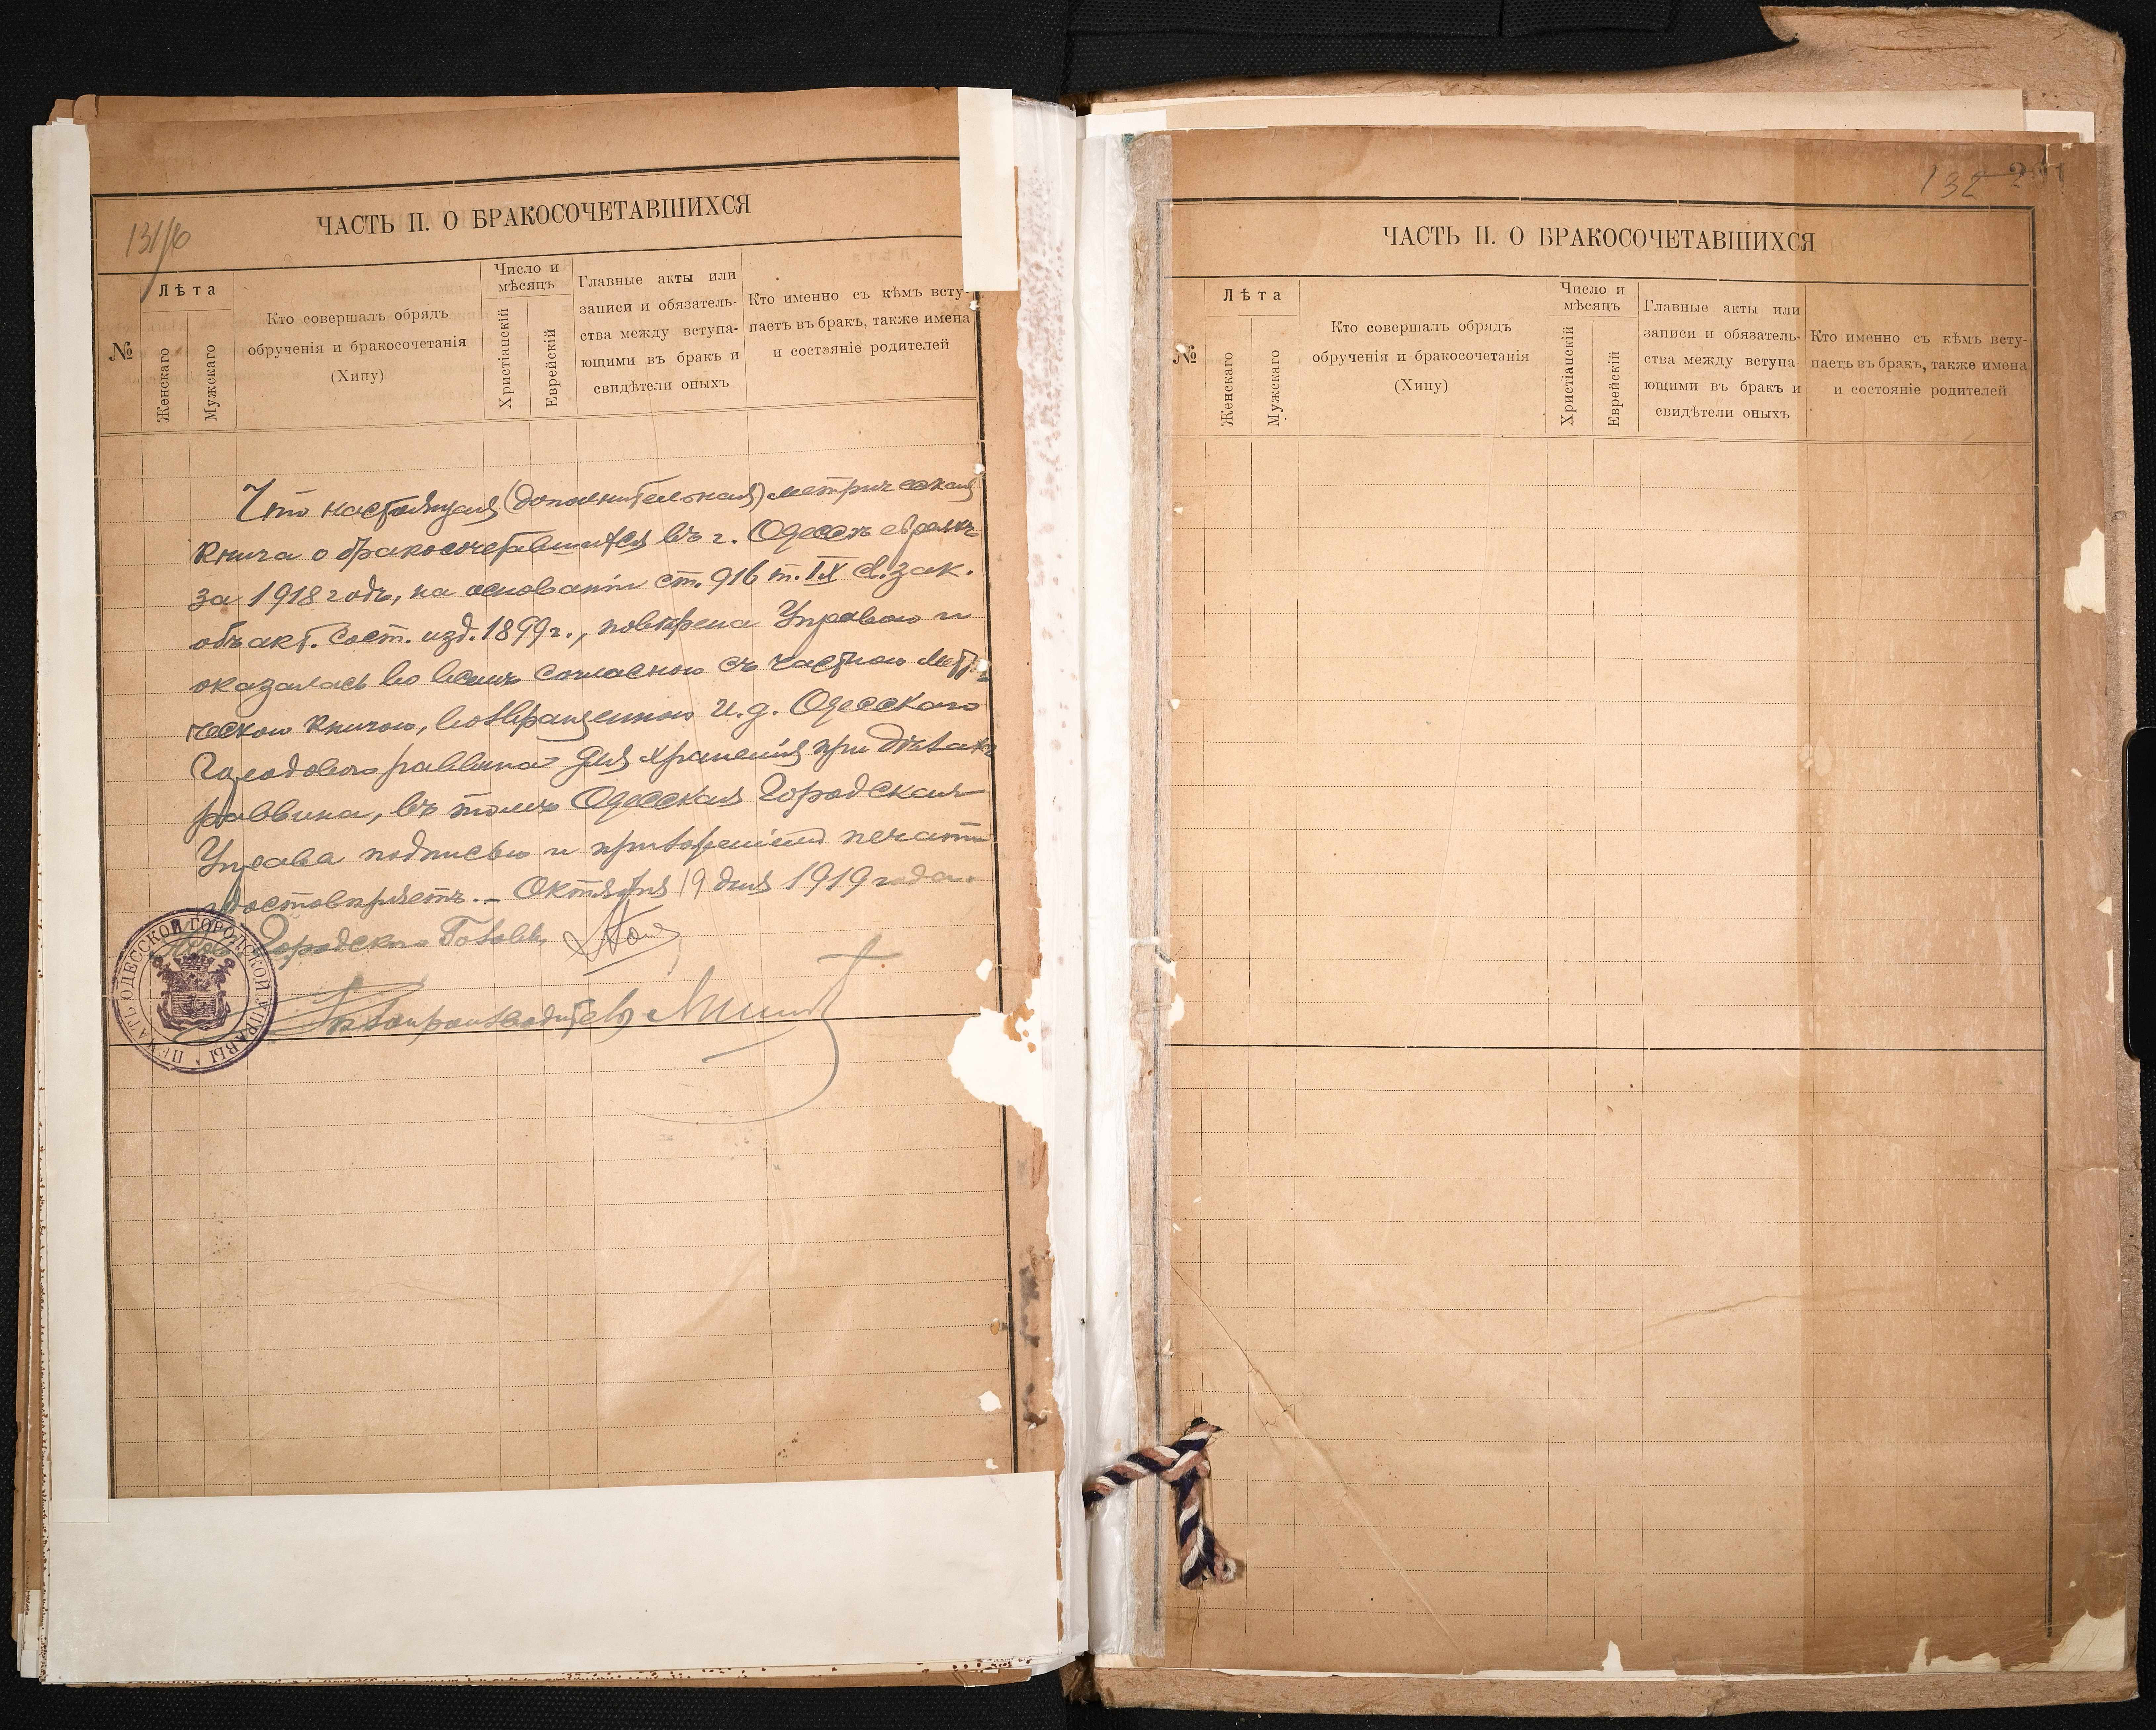 131/об
ЧАСТЬ II. О БРАКОСОЧЕТАВШИХСЯ
№
Лѣта
Женскаго
Мужскаго
Кто совершалъ обрядъ
обрученія и бракосочетанія
(Хипу)
Число и
мѣсяцъ
Христіанскій
Еврейскій
Главные акты или
записи и обязатель-
ства между вступа-
ющими въ бракъ и
свидѣтели оныхъ
Кто именно съ кѣмъ всту-
паетъ въ бракъ, также имена
и состояніе родителей
Что настоящая (дополнительная) метрическая
книга о бракосочетавшихся въ г. Одессѣ евреяхъ
за 1918 годъ, на основаніи ст. 916 т. IX св. зак.
объ акт. сост. изд. 1899 г., повѣрена Управою и
оказалась во всемъ согласною съ частною метри-
ческою книгою, возвращенною И. д. Одесскаго
Городового раввина для храненія при дѣлахъ
раввина, въ томъ Одесская Городская
Управа подписью и приложеніемъ печати
удостовѣряетъ.- Октября 19 дня 1919 года.
Городского Головы
Дѣлопроизводитель
ПЕЧАТЬ ОДЕССКОЙ ГОРОДСКОЙ УПРАВЫ
132
ЧАСТЬ II. О БРАКОСОЧЕТАВШИХСЯ
№
Лѣта
Женскаго
Мужскаго
Кто совершалъ обрядъ
обрученія и бракосочетанія
(Хипу)
Число и
мѣсяцъ
Христіанскій
Еврейскій
Главные акты или
записи и обязатель-
ства между вступа-
ющими въ бракъ и
свидѣтели оныхъ
Кто именно съ кѣмъ всту-
паетъ въ бракъ, также имена
и состояніе родителей